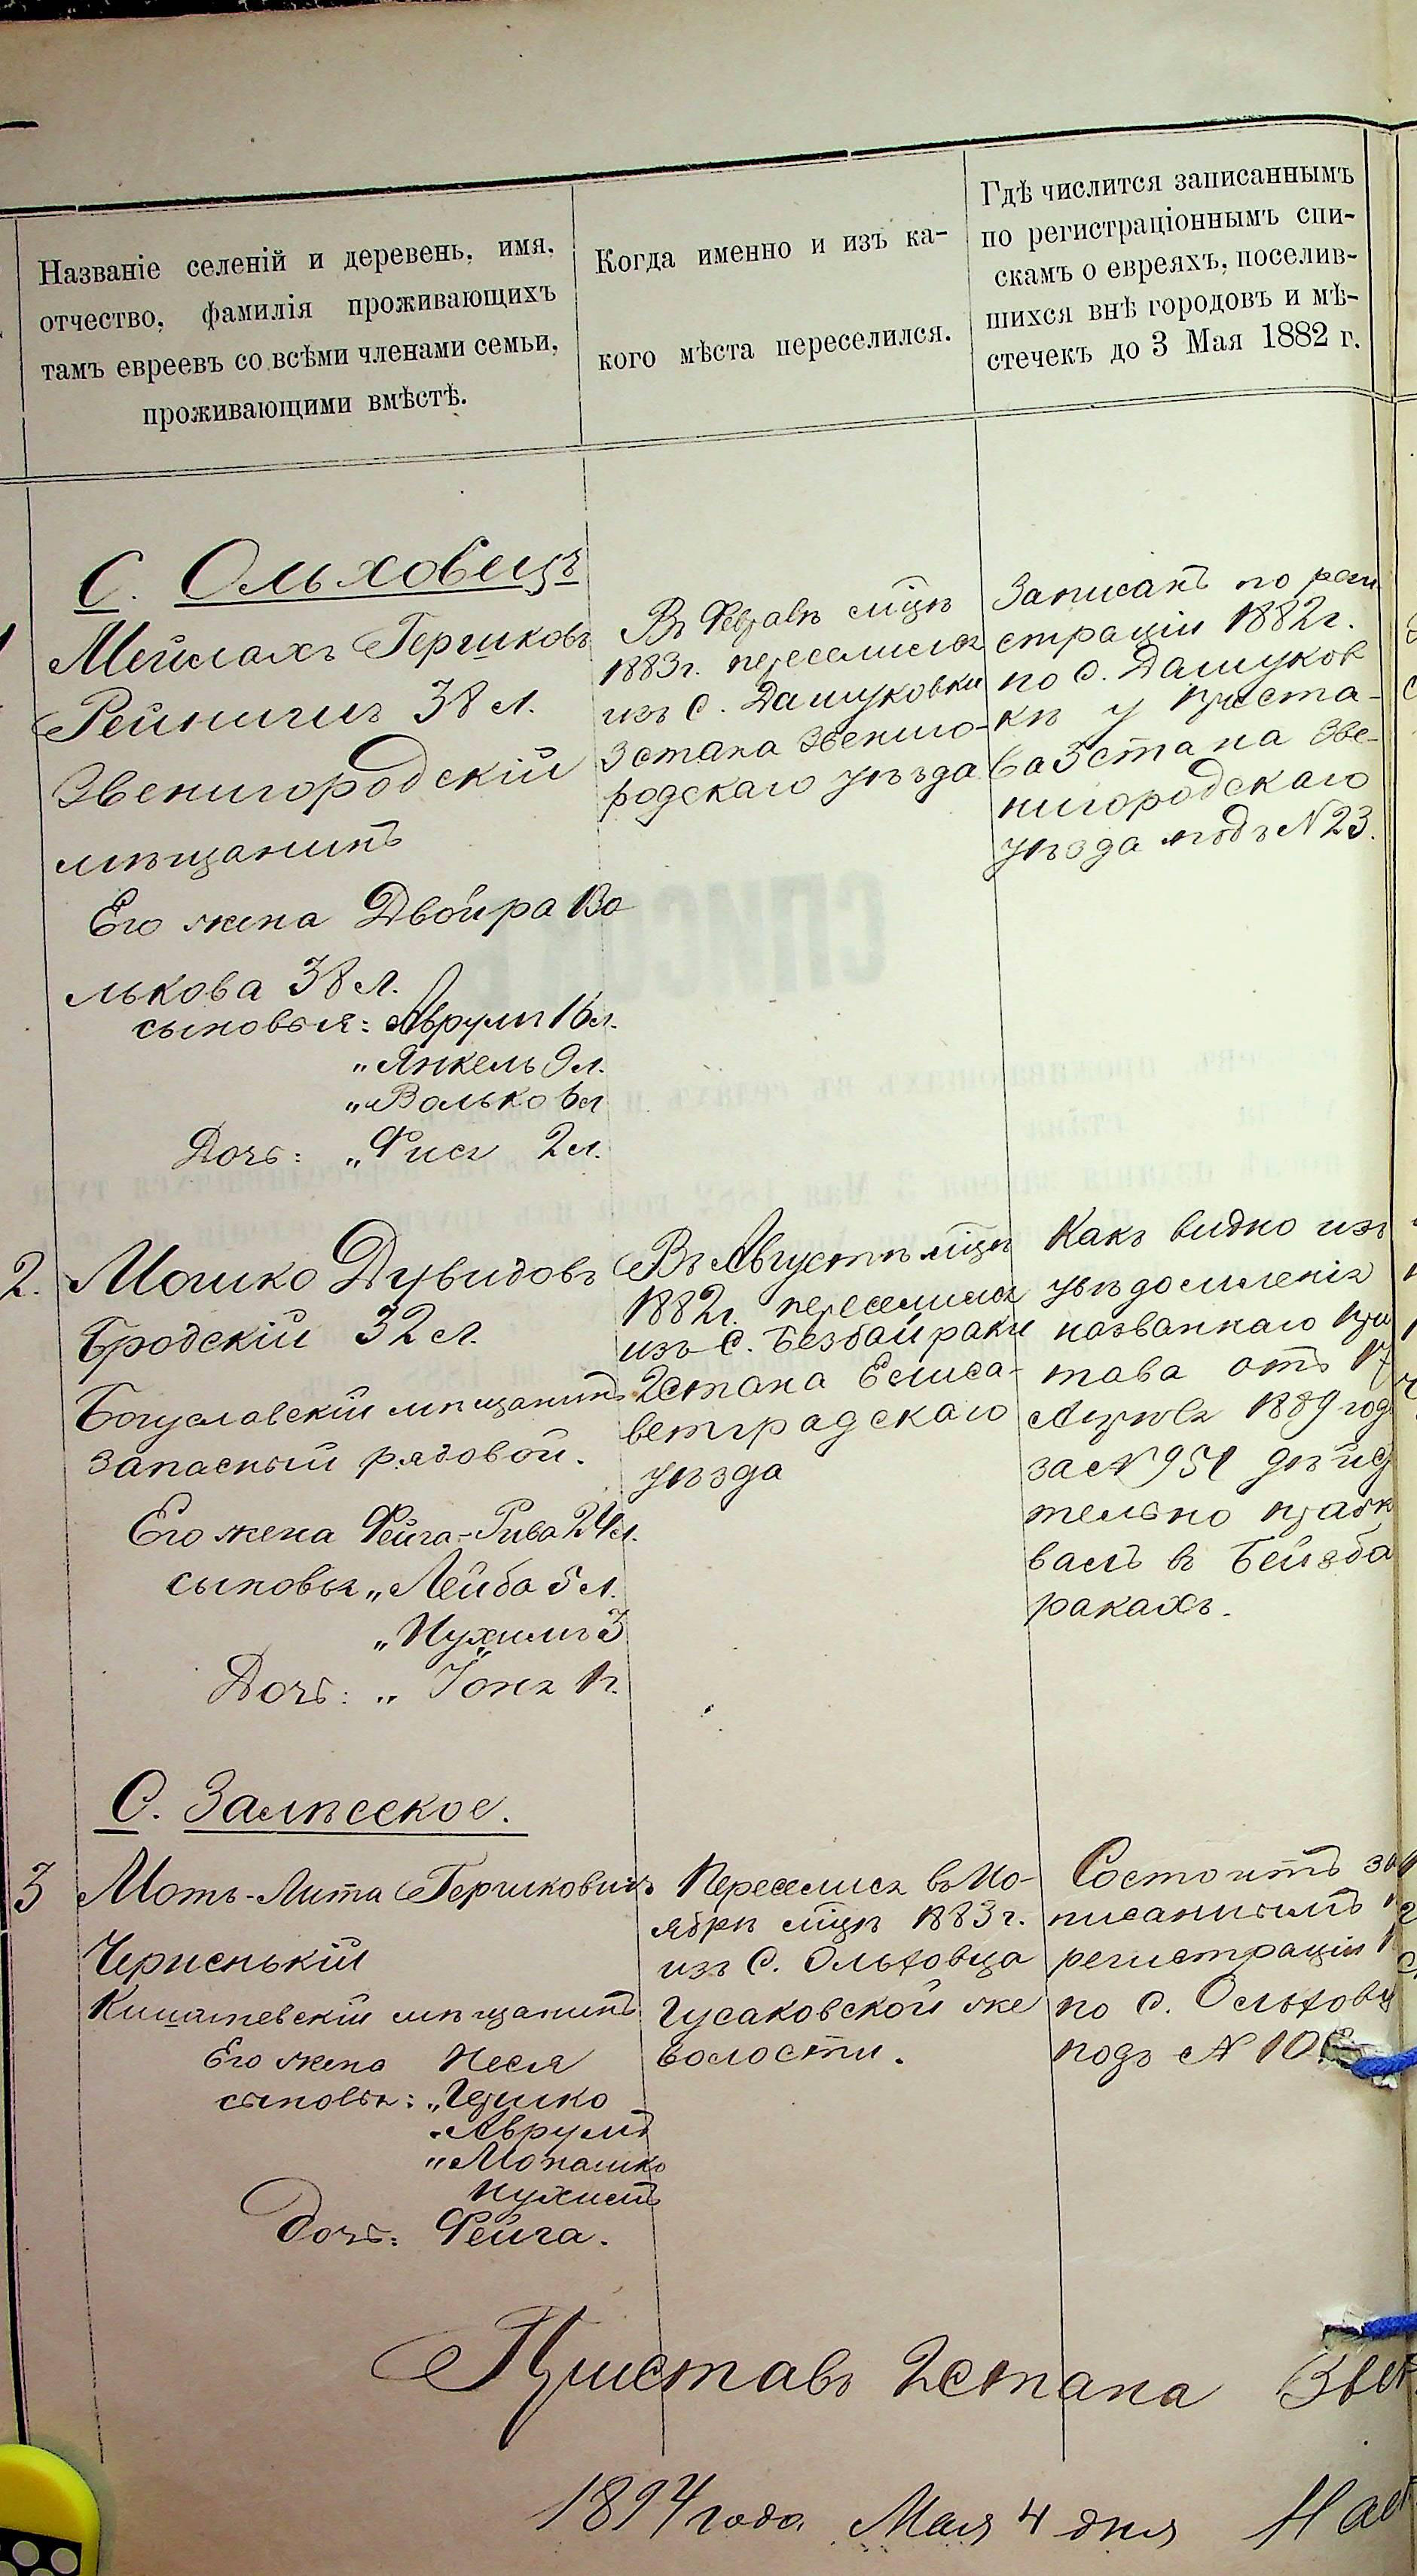 Названіе селеній и деревень, имя,
отчество, фамилія проживающихъ
тамъ евреевъ со всѣми членами семьи,
проживающими вмѣстѣ.
Когда именно и изъ ка-
кого мѣста переселился.
Гдѣ числится записаннымъ
по регистраціоннымъ спи-
скамъ о евреяхъ, поселив-
шихся внѣ городовъ и мѣ-
стечекъ до 3 Мая 1882 г.
С. Ольховецъ
Мейлахъ Гершковъ
Рейничъ 38 л.
Звенигородскій
мѣщанинъ
Его жена Двойра Во
лькова 38 л.
сыновья: Аврум 16 л.
„ Янкель 9 л.
„ Волько 6 л
Дочь: „ 2 л.
Въ Февралѣ мцѣ
1883 г. переселился
изъ с. Дашуковки
3 стана Звениго-
родскаго уѣзда
Записанъ по реги
страціи 1882 г.
по с. Дашуков
кѣ у Приста-
ва 3 стана Зве-
нигородскаго
уѣзда подъ № 23.
2. Мошко Дувидовъ
Бродскій 32 л.
Богуславскій мѣщанинъ
запасный рядовой.
Его жена Фейга-Рива 24 л.
сыновья „ Лейба 5 л.
„ Нухимъ 3
Дочь: „ 1 г.
Въ Августѣ мцѣ
1882 г. переселился
изъ с. Безбайраки
2 стана Елиса-
ветградскаго
уѣзда
Какъ видно изъ
увѣдомленія
названнаго при
тава отъ 17
Апрѣля 1889 год
за № 951 дѣйс
тельно
валъ в Бейзба
ракахъ.
С. Залѣсское.
3 Мотъ-Лита Гершковичъ
Черненькій
Кишиневскій мѣщанинъ
Его жена Неся
сыновья: „ Гершко
„ Аврумъ
„ Монашко
Нухимъ
Дочь: Фейга.
Переселися в Но-
ябрѣ мцѣ 1883 г.
изъ с. Ольховца
Гусаковской же
волости.
Состоитъ за
писаннымъ
регистраціи
по с. Ольховц
подъ № 10
Приставъ 2 стана Звен
1894 года Мая 4 дня